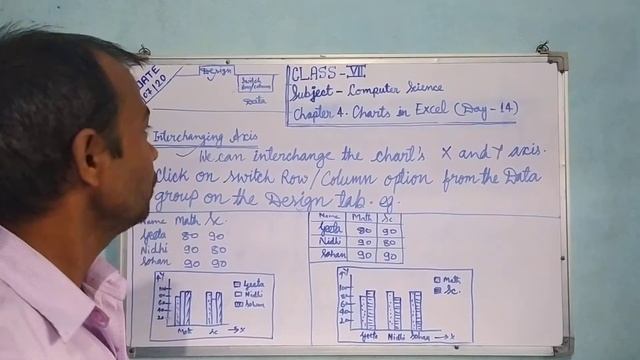 DATE
07/20
Design
Switch
Row/Column
Data
CLASS - VII
Subject - Computer Science
Chapter 4. Charts in Excel (Day - 14)
Interchanging Axis
We can interchange the chart's X and Y axis.
Click on switch Row/Column option from the Data
group on the Design tab. eg.
Name Math Sc.
Geeta 80 90
Nidhi 90 80
Sohan 90 90
Name Math Sc.
Geeta 80 90
Nidhi 90 80
Sohan 90 90
Y
100
80
60
40
20
Math Sc → X
Geeta
Nidhi
Sohan
Y
100
80
60
40
20
Geeta Nidhi Sohan → X
Math
Sc.